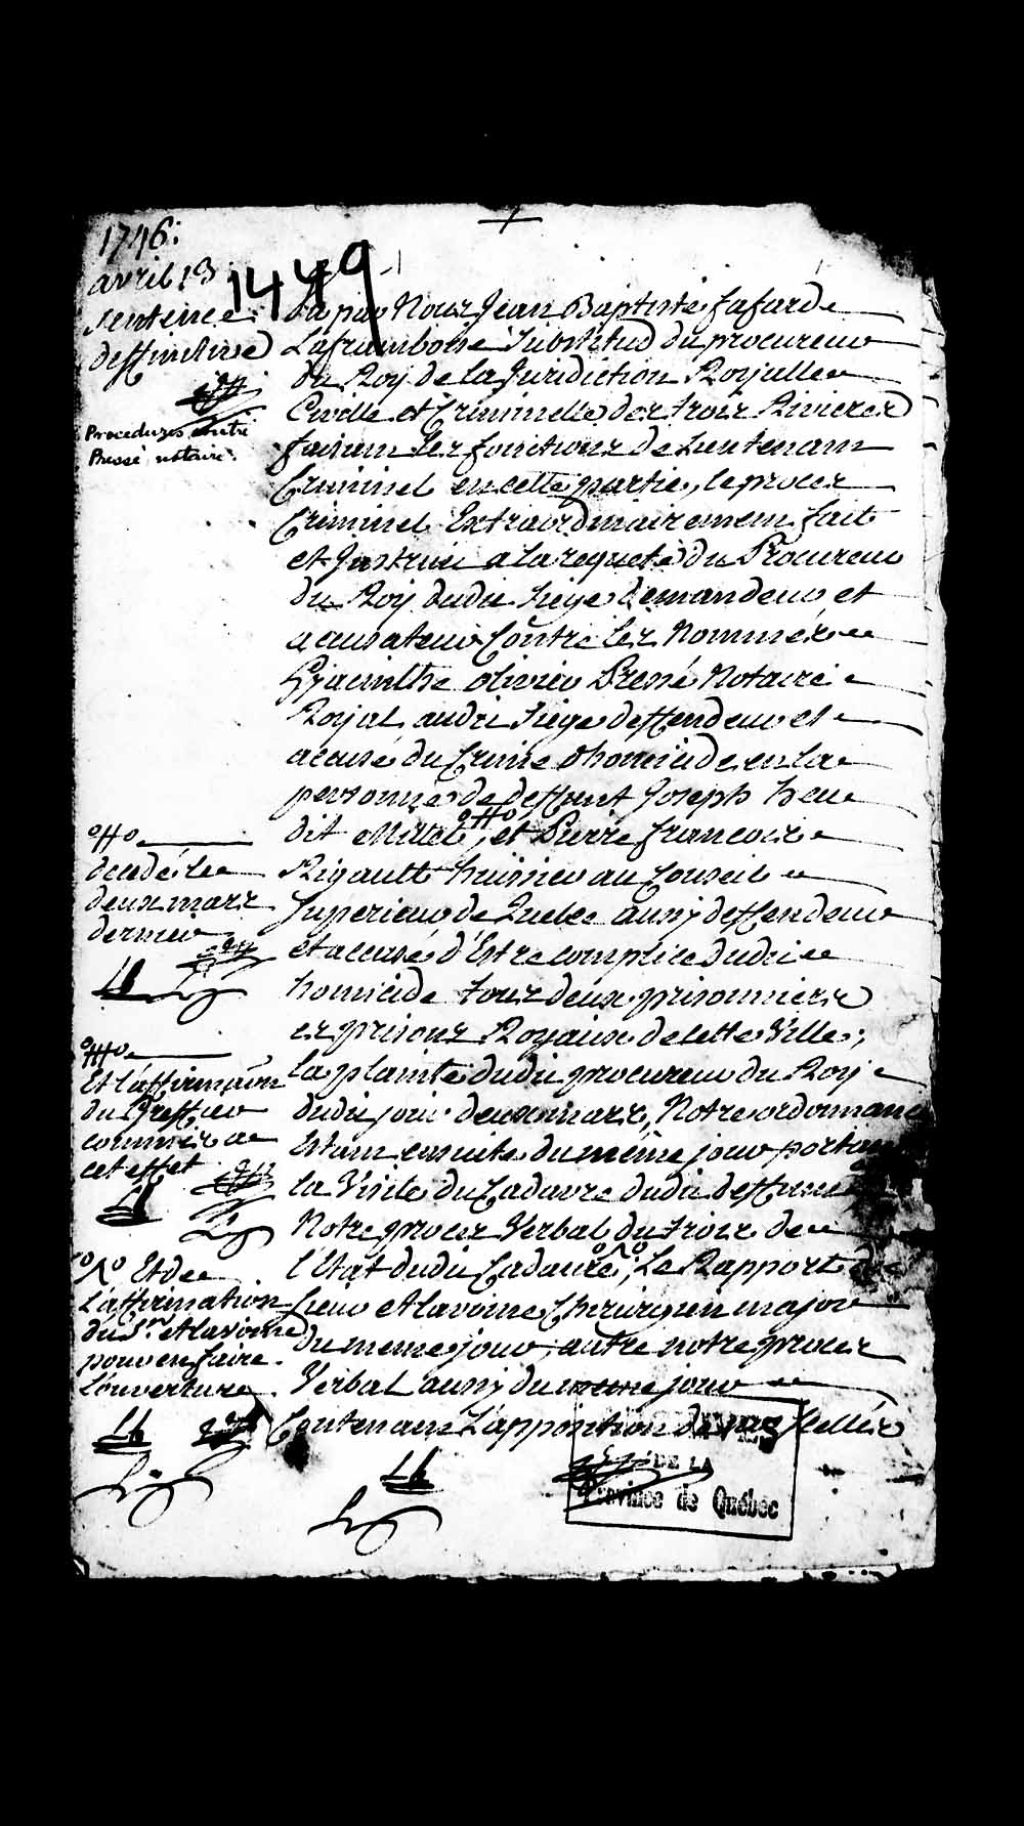 1746:
avril 13
sentence
deffinitive
1449
Procedures contre
Pressé notaire.
Vu par Nous Jean Baptiste fafard
Laframboise Substitud du procureur
du Roy de la Juridiction Royalle
Civille et Criminelle des trois Rivieres
faisant les fonctions de Lieutenant
Criminel en cette partie, le proces
Criminel Extraordinairement fait
et Instruit a la requete du Procureur
du Roy dudit siege demandeur et
acusateur Contre les Nommés
hyacinthe olivier Pressé Notaire
Royal audit siege deffendeur et
acusé du Crime d'homicide en la
personne de deffunt Joseph heu
dit Millet, et Pierre francois
Rigault huissier au Conseil
Superieur de Quebec aussy deffendeur
et accusé d'Estre complice dudit
homicide tous deux prisonniers
es prisons Royaux de cette Ville;
la plainte dudit procureur du Roy
dudit jour deux mars, Notre ordonnance
Estant ensuite du même jour portant
la Visite du Cadavre dudit deffunt
Notre proces Verbal du trois de
l'Etat dudit Cadavre, Le Rapport du
Sieur Alavoine Chirurgien major
du meme jour, autre notre proces
Verbal aussy du meme jour
Contenant L'apposition de nos scellés
decedé le
deux mars
dernier
Et l'affirmaon
du Greffier
commis a
cet effet
Et de
L'affirmation
du Sr. Alavoine
pour en faire
l'ouverture.
DE LA
Province de Québec